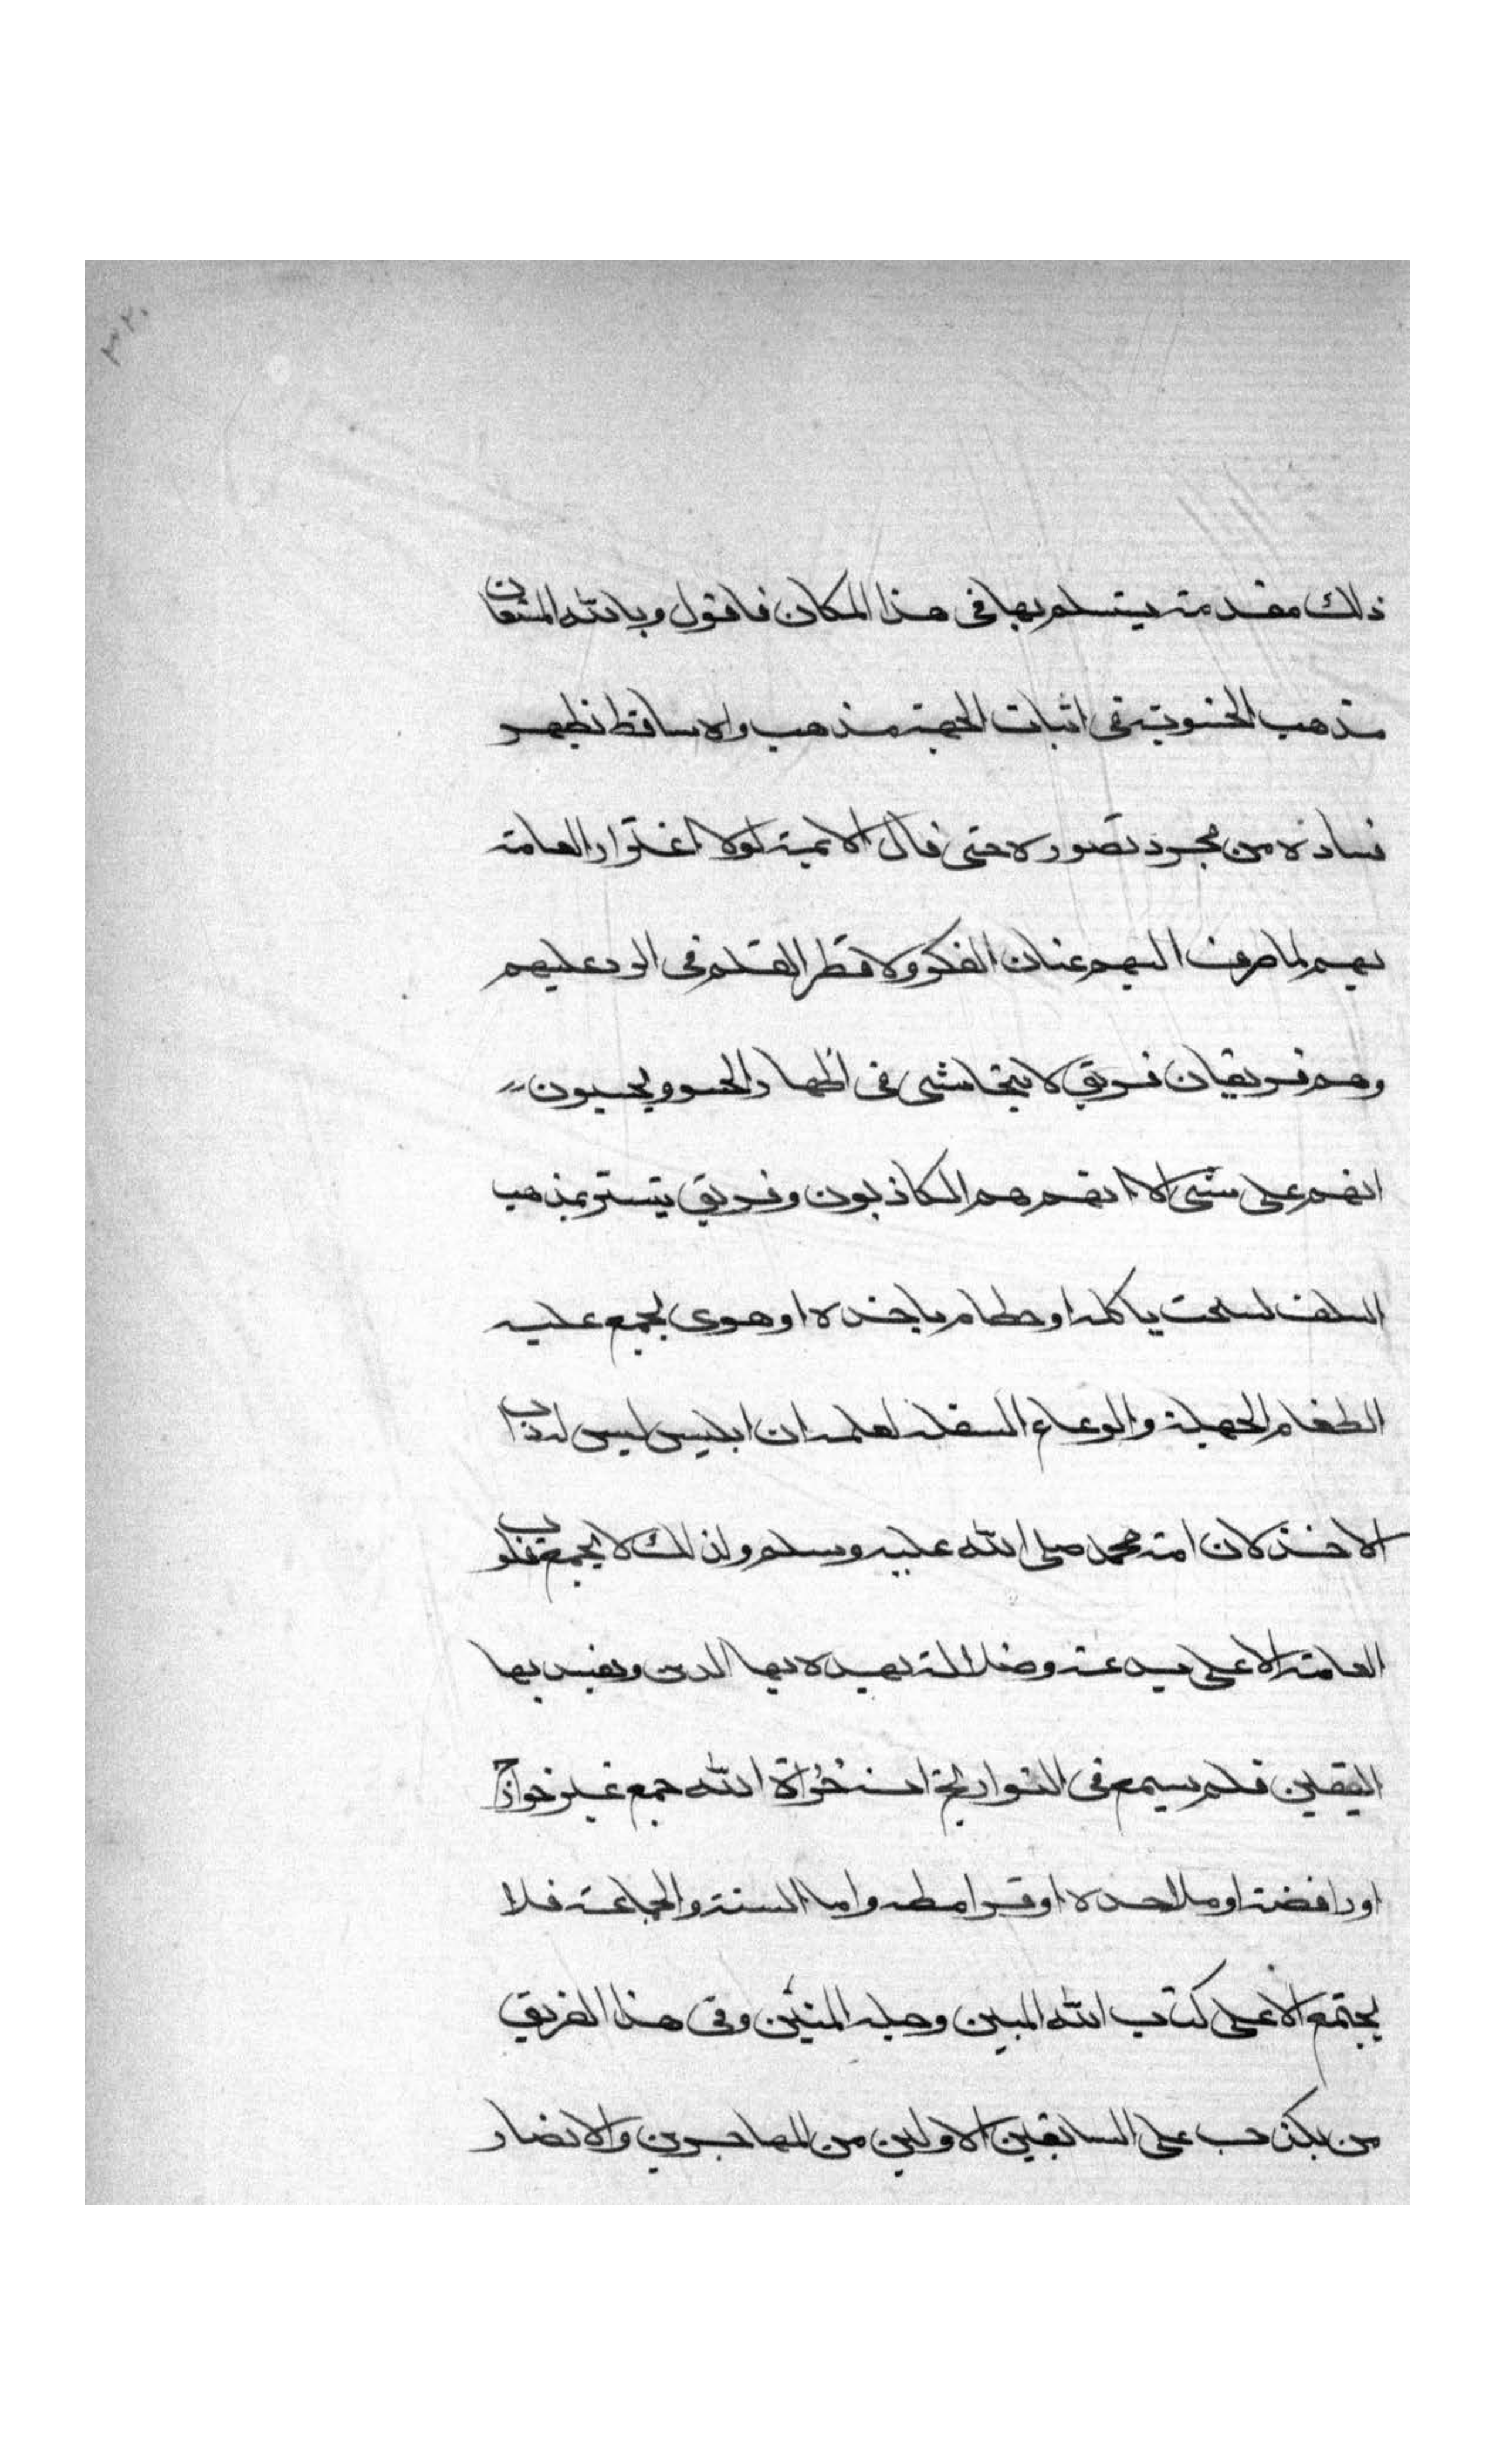 ٣٢٠
ذلك مقدمة يستلم بها في هذا المكان فاقول وبالله المستعان
مذهب الحشوية في اثبات الجهة مذهب واه ساقط نظهر
فساده من مجرد تصوره حتى قال الايمة لولا اغترار العامة
بهم لما صرف اليهم عنان الفكر ولا قطر القلم في الرد عليهم
وهم فريقان فريق لا يتحاشى في اظهار الحشو ويحسبون
انهم على شي الا انهم هم الكاذبون وفريق يتستر بمذهب
السلف لسحت ياكله او حطام ياخذه او هوى يجمع عليه
الطغام الجهلة والرعاع السفلة لعلمه ان ابليس ليس له داب
الا خذلان امة محمد صلى الله عليه وسلم ولذلك لا يجمع قلوب
العامة الا على بدعة وضلالة يهد لا بها الدين ويفسد بها
اليقين فلم يسمع في التواريخ انه خزاه الله جمع غير خوارج
او رافضة او ملاحدة او قرامطه واما السنة والجماعة فلا
يجتمع الا على كتاب الله المبين وحبله المتين وفي هذا الفريق
من يكذب على السابقين الاولين من المهاجرين والانصار